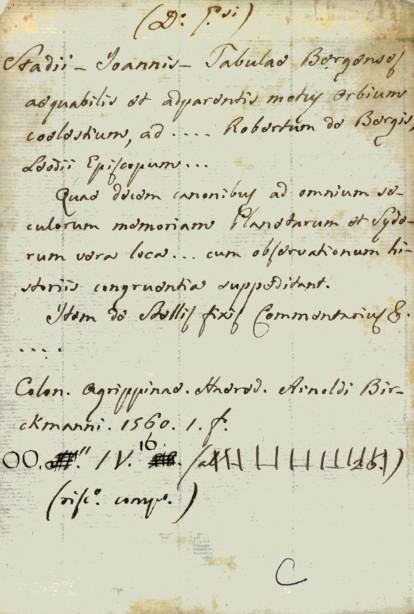 (D.º Pˢⁱ)
Stadii - Joannis - Tabulae Bergenses
aequabilis et adparentis motus orbium
coelestium, ad .... Robertum de Bergis,
Leodii Episcopum...
Quae decem canonibus ad omnium sae-
culorum memoriam Planetarum et Syde-
rum vera loca... cum observationum hi-
storiis congruentia suppeditant.
Item de Stellis fixis Commentarius &.
....
Colon. Agrippinae. Haered. Arnoldi Bir-
ckmanni. 1560. 1. f.
OO. IV. 16.
(risc.º comp.º)
C